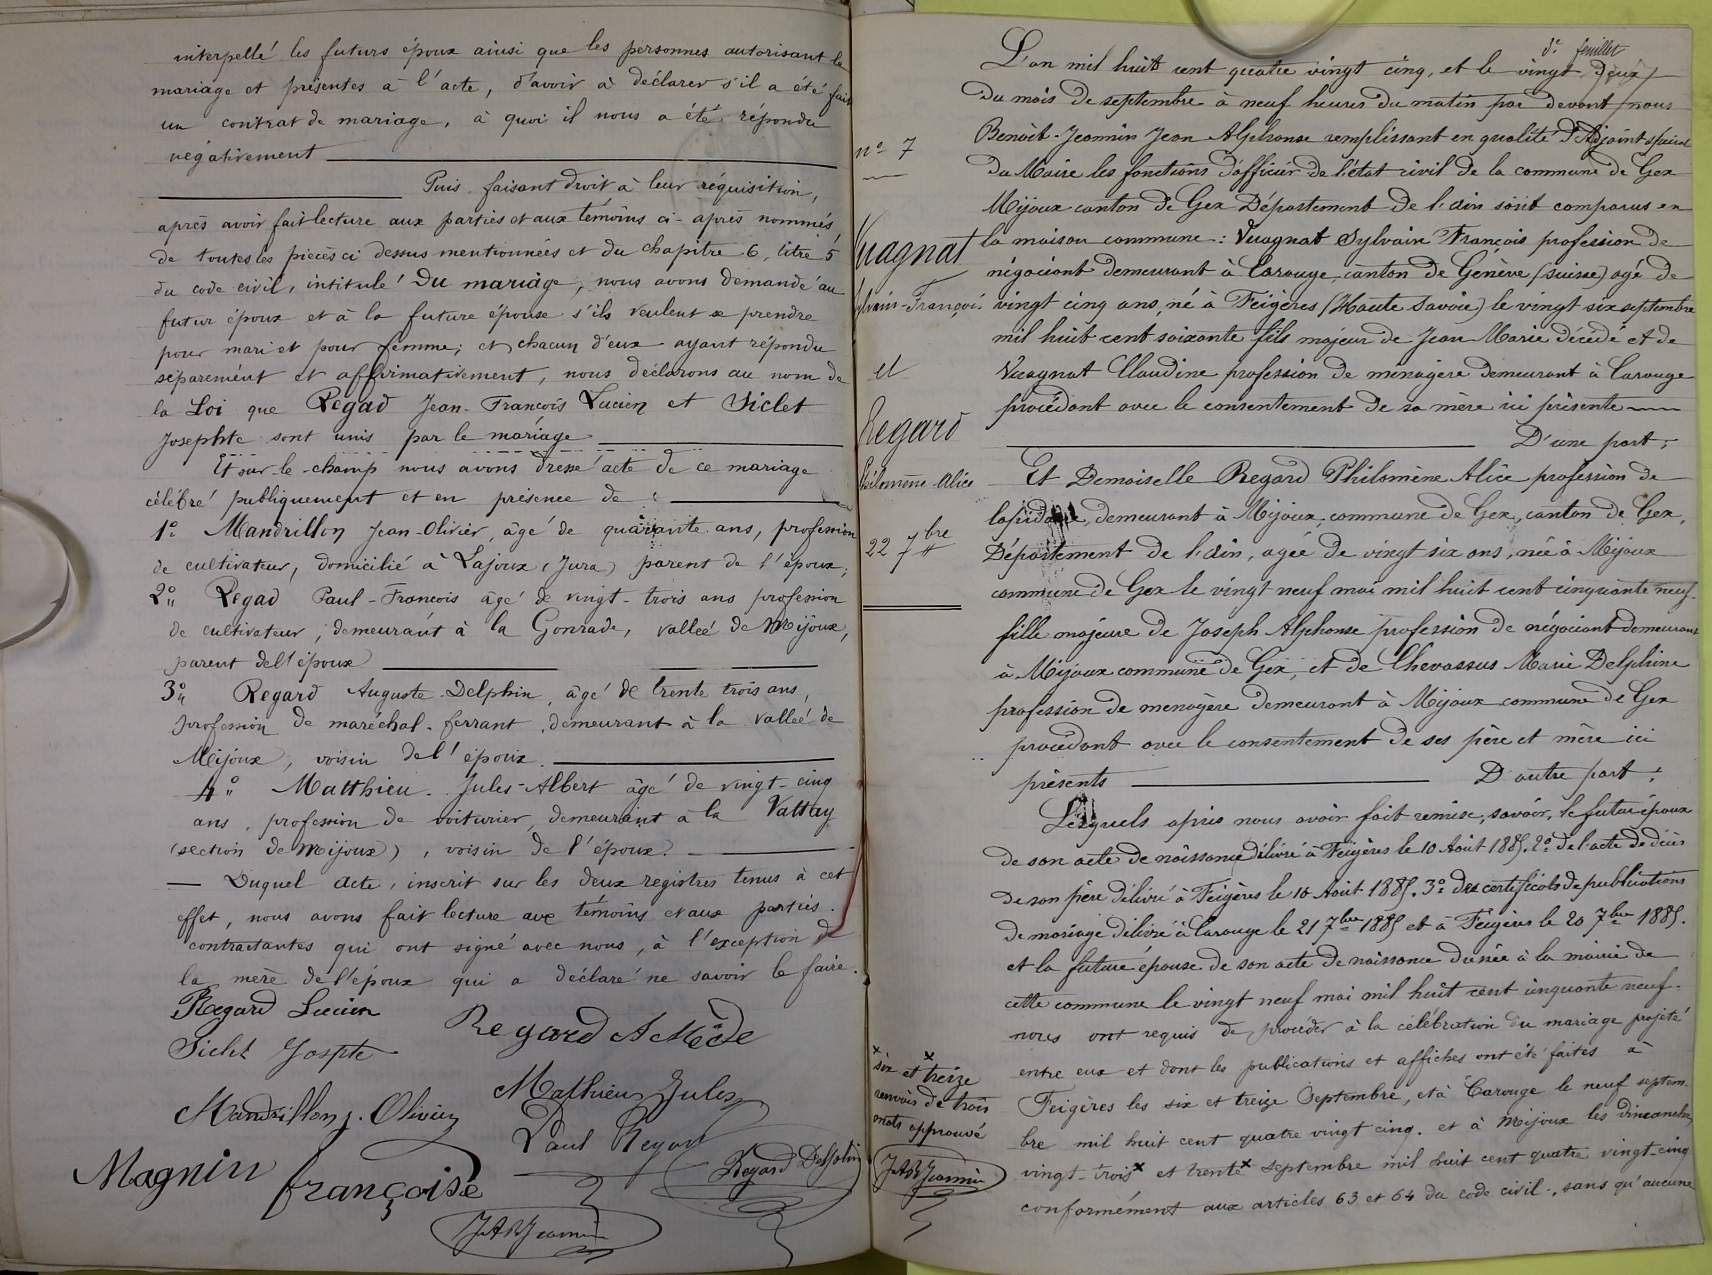 interpellé les futurs époux ainsi que les personnes autorisant le
mariage et présentes à l'acte, d'avoir à déclarer s'il a été fait
un contrat de mariage, à quoi il nous a été répondu
négativement
Puis faisant droit à leur réquisition,
après avoir fait lecture aux parties et aux témoins ci-après nommés,
de toutes les pièces ci dessus mentionnées et du chapitre 6, titre 5
du code civil, intitulé Du mariage, nous avons demandé au
futur époux et à la future épouse s'ils veulent se prendre
pour mari et pour femme; et chacun d'eux ayant répondu
séparément et affirmativement, nous déclarons au nom de
la Loi que Régad Jean-François Lucien et Siclet
Josephte sont unis par le mariage
Et sur-le-champ nous avons dressé acte de ce mariage
célébré publiquement et en présence de :
1° Mandrillon Jean-Olivier, âgé de quarante ans, profession
de cultivateur, domicilié à Lajoux (Jura) parent de l'époux;
2° Regad Paul-François âgé de vingt-trois ans profession
de cultivateur, demeurant à la Gonrade, vallée de Mijoux,
parent de l'époux
3° Regard Auguste Delphin, âgé de trente trois ans,
profession de maréchal-ferrant, demeurant à la vallée de
Mijoux, voisin de l'époux.
4° Matthieu Jules-Albert âgé de vingt-cinq
ans, profession de voiturier, demeurant à la Vattay
(section de Mijoux), voisin de l'époux.
Duquel acte, inscrit sur les deux registres tenus à cet
effet, nous avons fait lecture aux témoins et aux parties
contractantes qui ont signé avec nous, à l'exception de
la mère de l'époux qui a déclaré ne savoir le faire.
Regard Lucien
Siclet Jospte
Regard A
Mandrillon j. Olivier
Mathieu Jules
Paul Regad
Magnin françoise
Regard Delphin
JABJeannin
d.r feuillet
L'an mil huit cent quatre vingt cinq, et le vingt deux
du mois de septembre à neuf heures du matin par devant nous
Benoit-Jeannin Jean Alphonse remplissant en qualité d'Adjoint spécial
du Maire les fonctions d'officier de l'état civil de la commune de Gex
Mijoux canton de Gex Département de l'ain sont comparus en
la maison commune : Vuagnat Sylvain François profession de
négociant demeurant à Carouge, canton de Genève (Suisse) agé de
vingt cinq ans, né à Feigères (Haute Savoie) le vingt six septembre
mil huit cent soixante fils majeur de Jean Marie décédé et de
Vuagnat Claudine profession de ménagère demeurant à Carouge
procédant avec le consentement de sa mère ici présente
D'une part;
Et Demoiselle Regard Philomène Alice profession de
lapidaire, demeurant à Mijoux, commune de Gex, canton de Gex,
Département de l'ain, agée de vingt six ans, née à Mijoux
commune de Gex le vingt neuf mai mil huit cent cinquante neuf.
fille majeure de Joseph Alphonse profession de négociant demeurant
à Mijoux commune de Gex, et de Chevassus Marie Delphine
profession de menagère demeurant à Mijoux commune de Gex
procédant avec le consentement de ses père et mère ici
présents D'autre part;
Lesquels après nous avoir fait remise, savoir, le futur époux
de son acte de naissance délivré à Feigères le 10 Août 1885. 2° de l'acte de décès
de son père délivré à Feigères le 10 Août 1885. 3° des certificats de publications
de mariage délivré à Carouge le 21 7bre 1885 et à Feigères le 20 7bre 1885.
et la future épouse de son acte de naissance dressé à la mairie de
cette commune le vingt neuf mai mil huit cent cinquante neuf.
nous ont requis de procéder à la célébration du mariage projeté
entre eux et dont les publications et affiches ont été faites à
Feigères les six et treize Septembre, et à Carouge le neuf septem-
bre mil huit cent quatre vingt cinq. et à Mijoux les dimanches
vingt-trois x et trente x septembre mil huit cent quatre vingt-cinq
conformément aux articles 63 et 64 du code civil., sans qu'aucune
n° 7
Vuagnat
Sylvain-François
et
Regard
Philomène-Alice
22 7bre
x x
six et treize
renvois de trois
mots approuvé
JABJeannin